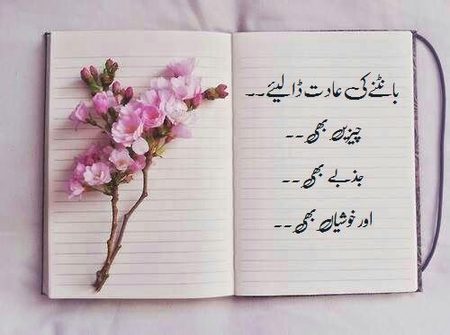 بانٹنے کی عادت ڈالیئے۔۔
چیزیں بھی ۔۔
جذبے بھی ۔۔
اور خوشیاں بھی ۔۔